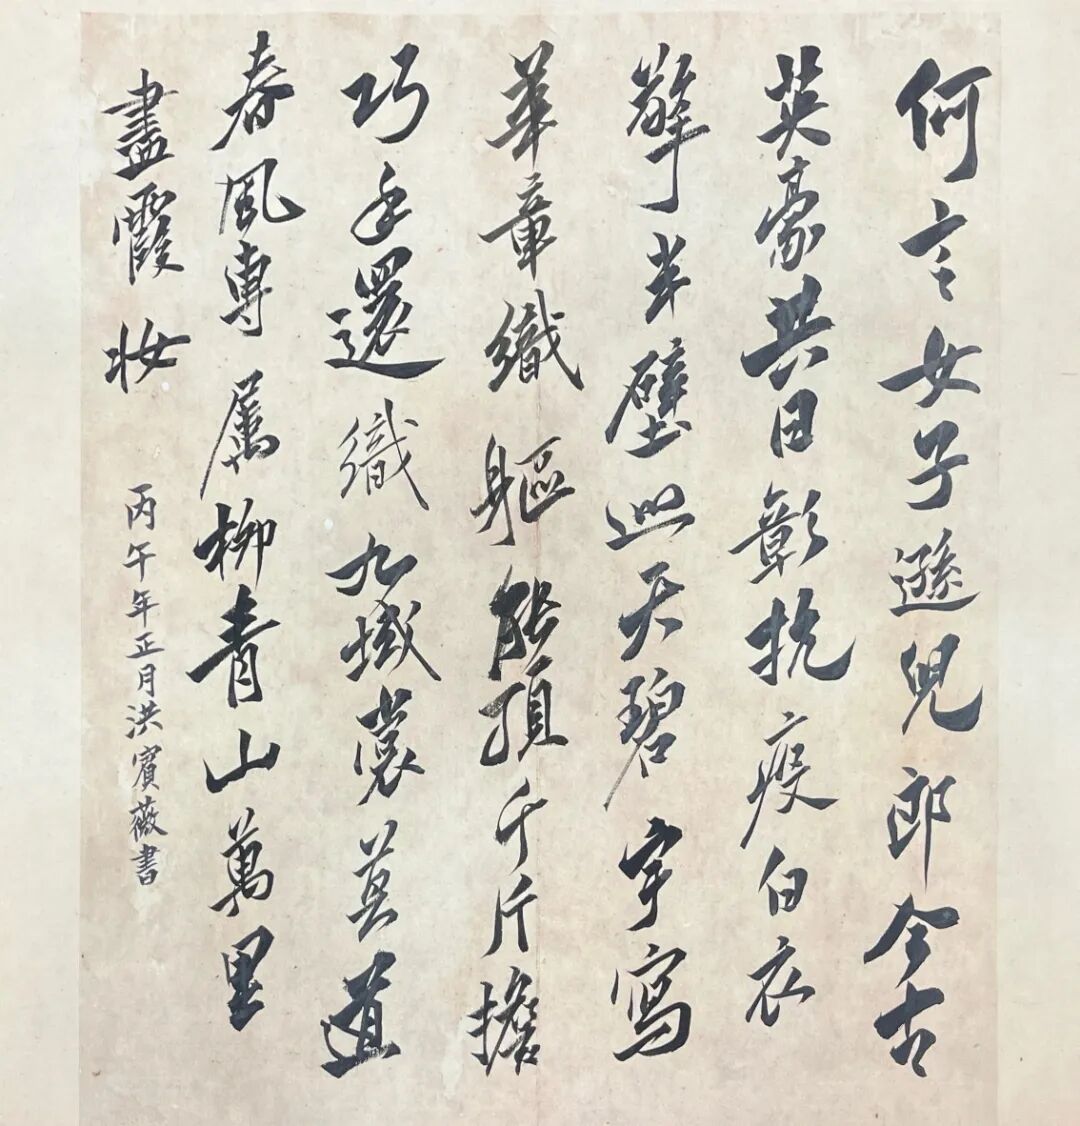 何言女子遜兒郎今古
英豪共日彰抗疫白衣
擎半壁巡天碧宇寫
華章纖軀能頂千斤擔
巧手還織九域裳莫道
春風專屬柳青山萬里
盡霞妝
丙午年正月洪賓薇書